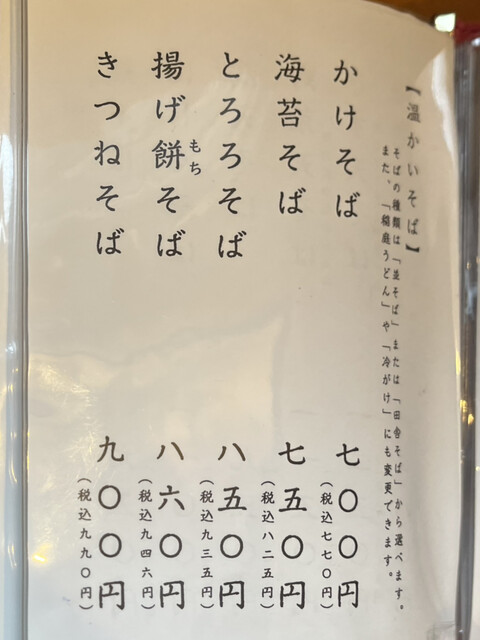 【温かいそば】
そばの種類は「並そば」または「田舎そば」から選べます。
また、「稲庭うどん」や「冷がけ」にも変更できます。
かけそば 七〇〇円
(税込七七〇円)
海苔そば 七五〇円
(税込八二五円)
とろろそば 八五〇円
(税込九三五円)
揚げ餅そば 八六〇円
もち
(税込九四六円)
きつねそば 九〇〇円
(税込九九〇円)